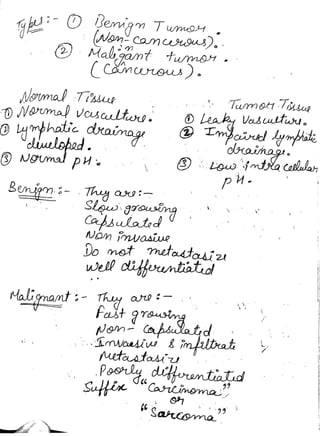 Type :- ① Benign Tumor
(Non-Cancerous).
② Maligant tumor.
(Cancurous).
Normal Tissue
① Normal vasculture.
② Lymphatic drainage
developed.
③ Normal pH.
Tumor Tissue
① Leaky Vasculture.
② Impaired lymphatic
drainage.
③ Low intra cellular
pH.
Benign :- They are :-
Slow growing
Capsulated
Non invasive
Do not metastasize
Well differentiated
Malignant :- They are :-
Fast growing
Non-Capsulated
Invasive & infiltrate
Metastasize
Poorly differentiated
Suffix "Carcinoma"
or
"Sarcoma"